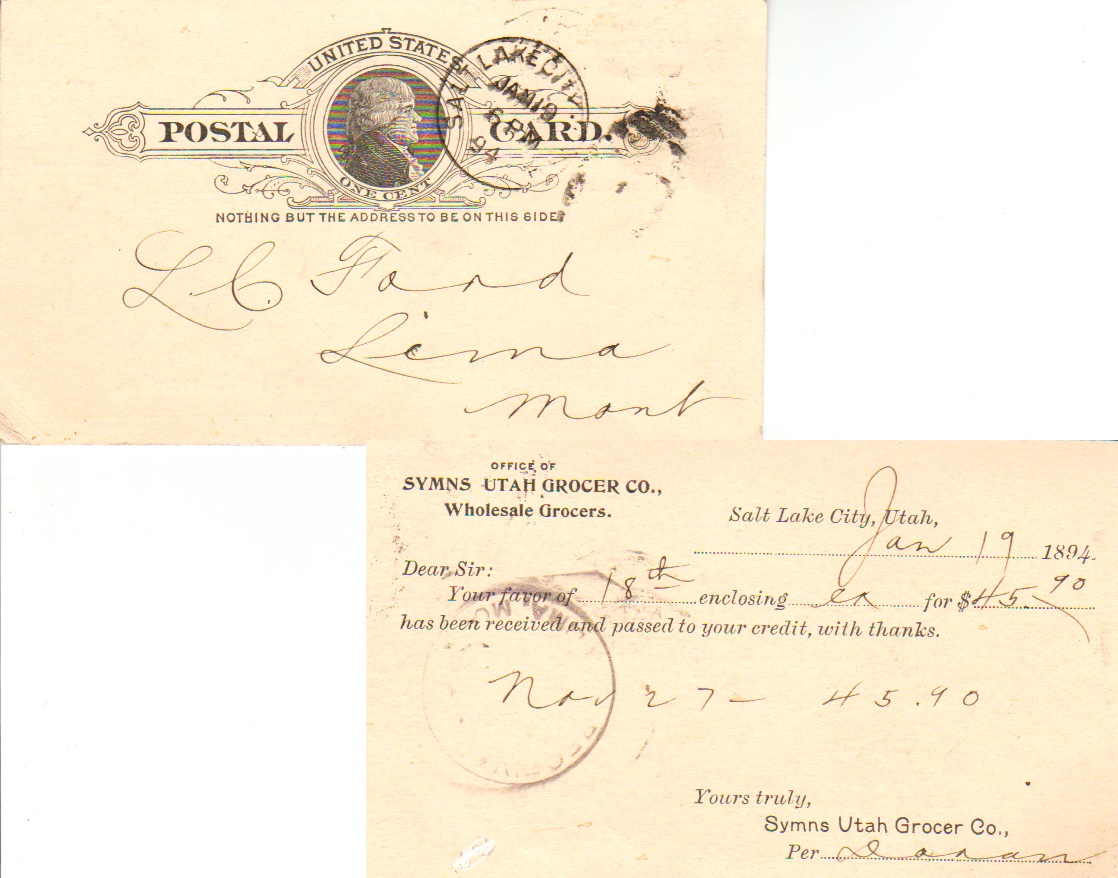 UNITED STATES
POSTAL CARD.
ONE CENT
SALT LAKE CITY
JAN 19
6 PM
94
NOTHING BUT THE ADDRESS TO BE ON THIS SIDE.
L C Ford
Lima
Mont
OFFICE OF
SYMNS UTAH GROCER CO.,
Wholesale Grocers.
Salt Lake City, Utah,
Jan 19 1894.
Dear Sir:
Your favor of 18th enclosing for $45.90
has been received and passed to your credit, with thanks.
Nov 27 - 45.90
Yours truly,
Symns Utah Grocer Co.,
Per